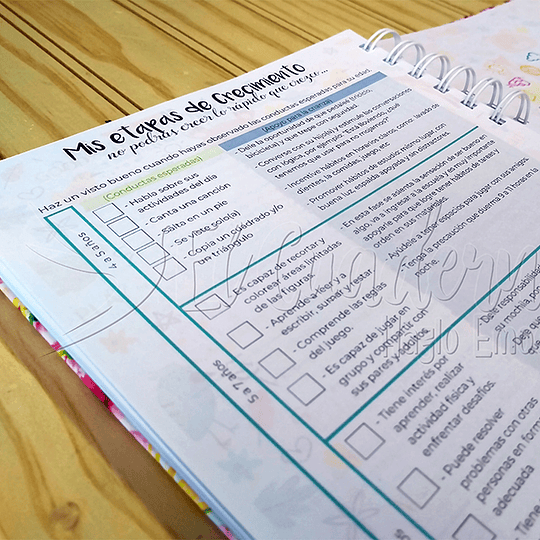 Mis etapas de Crecimiento
no podrás creer lo rápido que crezco...
Haz un visto bueno cuando hayas observado las conductas esperadas para su edad.
(Conductas esperadas)
(Apoyo para la crianza)
4 a 5 años
- Habla sobre sus
actividades del día
- Canta una canción
- Salta en un pie
- Se viste solo(a)
- Copia un cuadrado y/o
un triángulo
- Dele la oportunidad de que pedalee (triciclo,
bicicleta) y que trepe con seguridad.
- Converse con su hijo(a) y estimule las conversaciones
con lógica, por ejemplo, "Está lloviendo, ¿qué
tenemos que usar para no mojarnos?
- Incentive hábitos en horarios claros, como: lavado de
dientes, la comida, juego, etc.
- Promover hábitos de estudio mismo lugar con
buena luz, útiles para dibujar y otros
5 a 7 años
- Es capaz de recortar y
colorear áreas limitadas
de las figuras
- Aprende a leer y a
escribir, sumar y restar.
- Comprende las reglas
del juego
- Es capaz de jugar en
grupo y compartir con
sus pares y adultos.
- En esta fase se asienta la sensación de ser bueno en
algo, va a ingresar a la escuela y es muy importante
apoyarle para que logre tener hábitos de tareas y
orden en sus materiales.
- Ayúdele a tener espacios para jugar con los amigos.
- Tenga la precaución que duerma 9 a 11 horas en la
noche.
- Tiene interés por
aprender, realizar
actividad física y
enfrentar desafíos.
- Puede resolver
problemas con otras
personas en forma
adecuada
- Dele responsabilidad
su mochila,
Dele
que